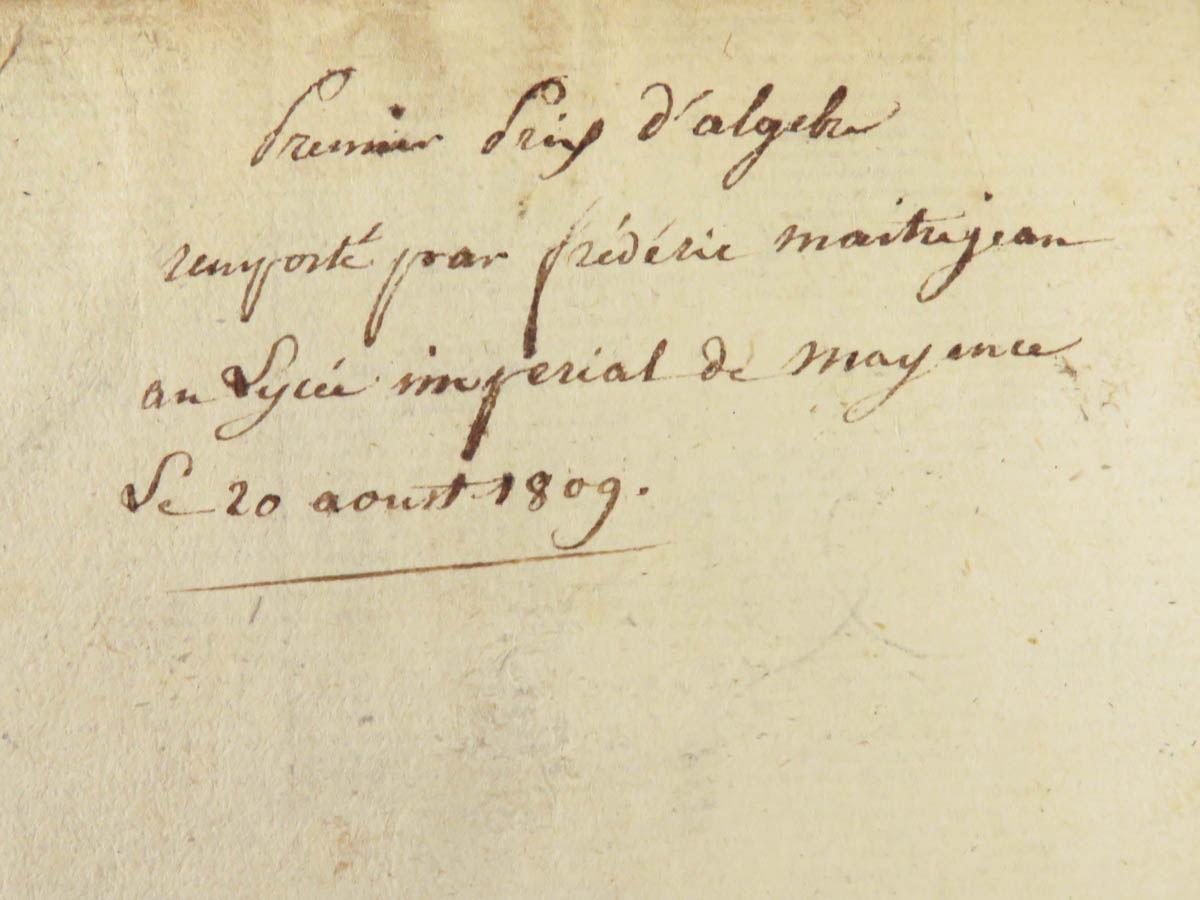 Premier Prix d'algebre
remporté par frédéric maitrejean
au Lycée imperial de mayence
Le 20 aoust 1809.